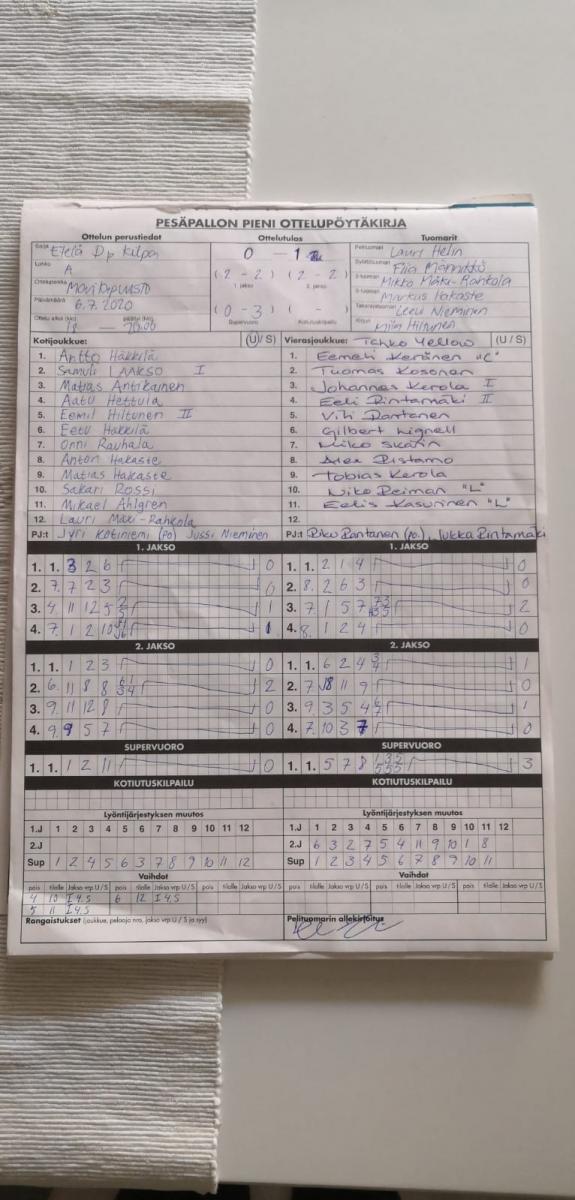 PESÄPALLON PIENI OTTELUPÖYTÄKIRJA
Ottelun perustiedot Ottelutulos Tuomarit
Sarja Etelä Dp Kilpa 0 – 1 Pelituomari Lauri Helin
Lohko A (2 – 2) (2 – 2) Syöttötuomari Männikkö
1. jakso 2. jakso Mikko Mäki-Rahkola
Ottelupaikka Markus Hakaste
Päivämäärä 6.7.2020 (0 – 3) ( – ) Takarajatuomari Leevi Nieminen
Ottelu alkoi (klo) 18 — päättyi (klo) 20.00 Supervuoro Kotiutuskilpailu Kirjuri Hiltunen
Kotijoukkue: (U/S) Vierasjoukkue: Tahko Yellow (U/S)
1. Antto Häkkilä 1. Eemeli Keränen "C"
2. Samuli LAAKSO I 2. Tuomas Kosonen
3. Matias Antikainen 3. Johannes Kerola I
4. Aatu Hettula 4. Eeli Rintamäki II
5. Eemil Hiltunen II 5. Vili Rantanen
6. Eetu Häkkilä 6. Gilbert Lignell
7. Onni Rauhala 7. Miko Skarin
8. Anton Hakaste 8. Alex Ristamo
9. Matias Hakaste 9. Tobias Kerola
10. Sakari Rossi 10. Niko Reiman "L"
11. Mikael Ahlgren 11. Eelis Kasurinen "L"
12. Lauri Mäki-Rahkola 12.
PJ:t Jyri Kotiniemi (po) Jussi Nieminen PJ:t Riku Rantanen (po.), Jukka Rintamäki
1. JAKSO 1. JAKSO
1. 1. 3 2 6 0 1. 1. 2 1 4 0
2. 7. 7 2 3 0 2. 8. 2 6 3 0
3. 4. 11 12 5 1 3. 7. 1 5 7 2
4. 7. 1 2 10 1 4. 8. 1 2 4 0
2. JAKSO 2. JAKSO
1. 1. 1 2 3 0 1. 1. 6 2 4 1
2. 6. 11 8 8 2 2. 7. 8 11 9 0
3. 9. 11 12 8 0 3. 9. 3 5 4 1
4. 9. 9 5 7 0 4. 7. 10 3 7 0
SUPERVUORO SUPERVUORO
1. 1. 1 2 11 0 1. 1. 5 7 8 3
KOTIUTUSKILPAILU KOTIUTUSKILPAILU
Lyöntijärjestyksen muutos Lyöntijärjestyksen muutos
1.J 1 2 3 4 5 6 7 8 9 10 11 12 1.J 1 2 3 4 5 6 7 8 9 10 11 12
2.J 2.J 6 3 2 7 5 4 11 9 10 1 8
Sup 1 2 4 5 6 3 7 8 9 10 11 12 Sup 1 2 3 4 5 6 7 8 9 10 11
Vaihdot Vaihdot
pois tilalle Jakso vrp U/S pois tilalle Jakso vrp U/S pois tilalle pois tilalle Jakso vrp U/S pois tilalle Jakso vrp U/S pois tilalle
4 10 I 4.S 6 12 I 4.S
5 11 I 4.S
Rangaistukset (joukkue, pelaaja nro, jakso vrp U/S ja syy) Pelituomarin allekirjoitus